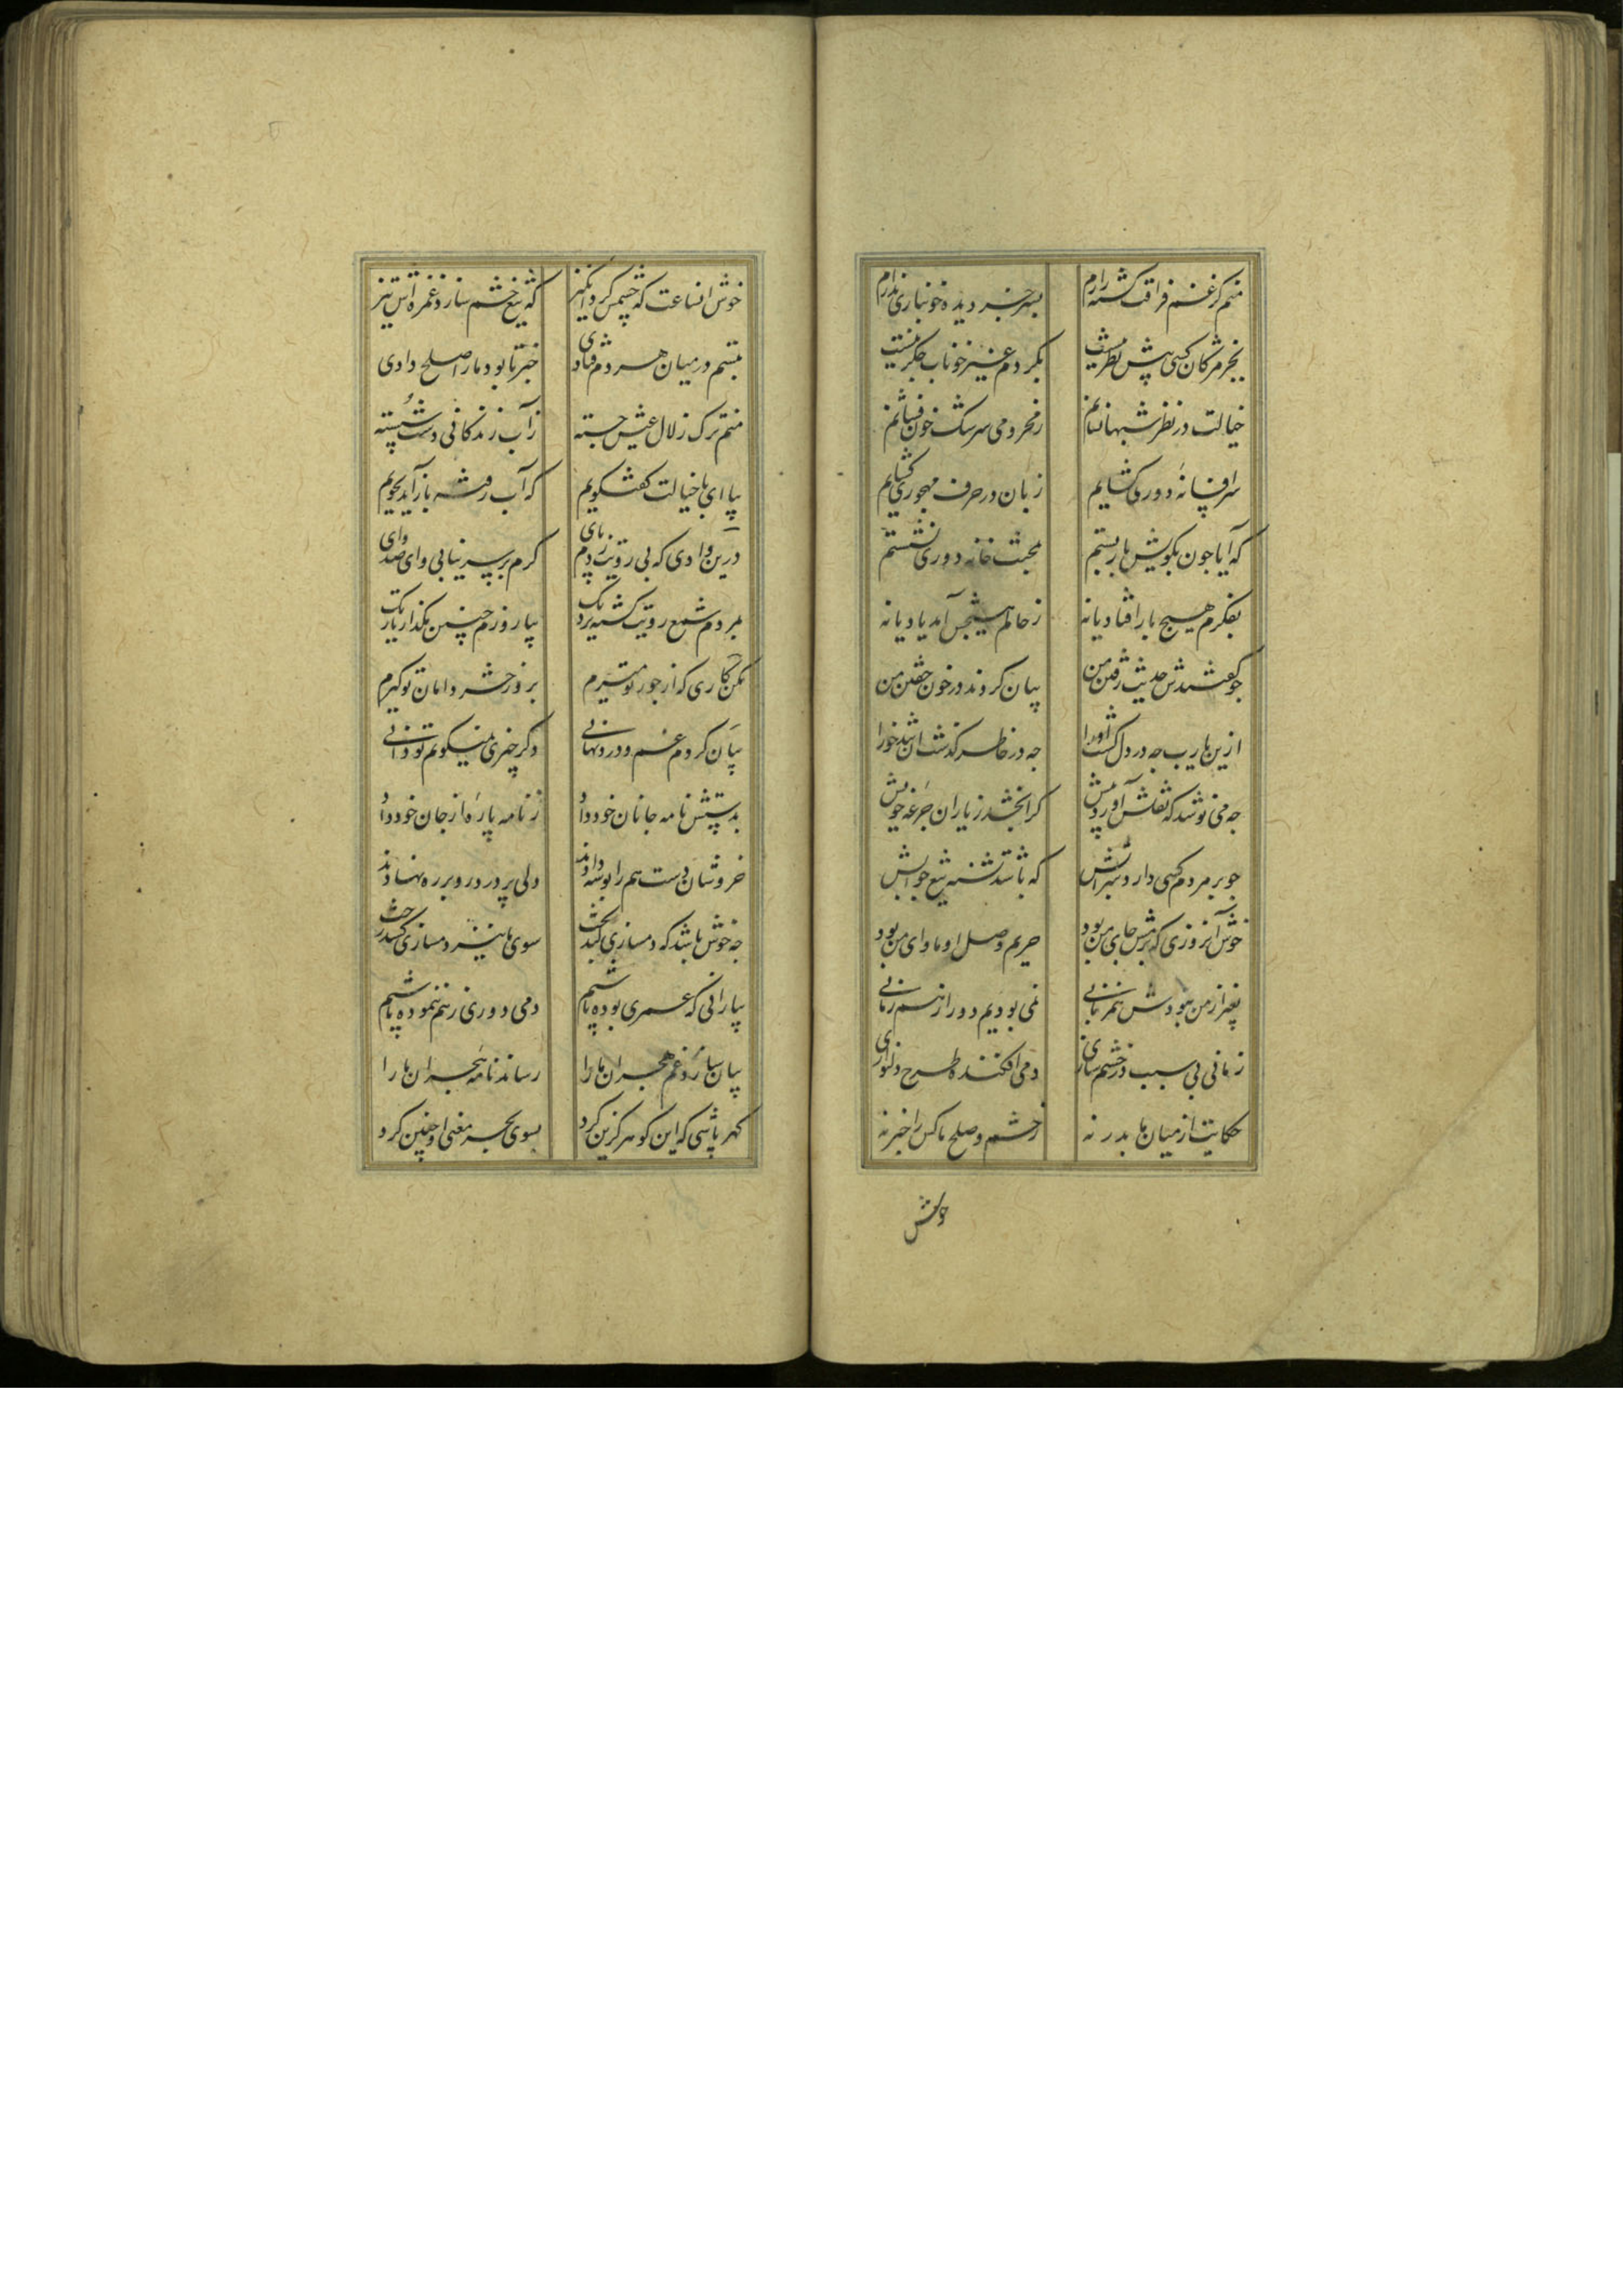 منم کز غم فراقت کشته زارم بسر جز دیده خونباری ندارم
بجز مژکان کسی پیش نظر نیست بکردم غیر خوناب جکر نیست
خیالت در نظر شبها نشانم ز محرومی سرشک خون فشانم
سر افسانهٔ دوری کشایم زبان در حرف مهجوری کشایم
که آیا جون بکویش بار بستم بمحنت خانه دوری نشستم
بفکرم هیچ بار افتاد یا نه ز حالم هیچش آمد یاد یا نه
جو کفتندش حدیث رفتن من بیان کردند در خون خفتن من
ازین یا رب جه در دل کشت او را جه در خاطر کذشت ان تندخو را
جه می نوشد که نقلش آورد پیش کرا بخشد ز یاران جرعهٔ خویش
جو بر مردم کسی دارد شرابش که باشد تشنه تیغ جوابش
خوش آنروزی که بزمش جای من بود حریم وصل او ماوای من بود
بغیر از من نبودش همزبانی نمی بودیم دور از هم زمانی
زمانی بی سبب در خشم سازی دمی افکنده طرح دلنوازی
حکایت از میان ما بدر نه ز خشم و صلح ما کس را خبر نه
خوش
خوش انساعت که چشمش کرد انکیز که تیغ خشم سازد غمزه اش تیز
تبسم در میان هر دم فتادی خبر تا بود ما را صلح دادی
منم ترک زلال عیش جسته ز آب زندکانی دست شسته
بیا ای با خیالت کفتکویم که آب رفته باز آید بجویم
درین وادی که بی رویت زدم کرم بر سر نیایی وای صد وای
بمردم شمع رویت کشته نزدیک بیا روزم چنین مکذار تاریک
مکن کاری که از جور تو میرم بروز حشر دامان تو کیرم
بیان کردم غم و درد نهانی دکر چیزی نمیکویم تو دانی
بدستش نامه جانان خود داد ز نامه پارهٔ از جان خود داد
خروشان دست هم را بوسه دادند ولی پر درد رو بر ره نهادند
جه خوش باشد که دمسازی کند بخت سوی ما نیز دمسازی کشد رخت
بیارانی که عمری بوده باشیم دمی دوری ز هم ننموده باشیم
بیان سازد غم هجران ما را رساند نامهٔ هجران ما را
کهر پاشی که این کوهر کزین کرد بسوی بحر معنی او چنین کرد